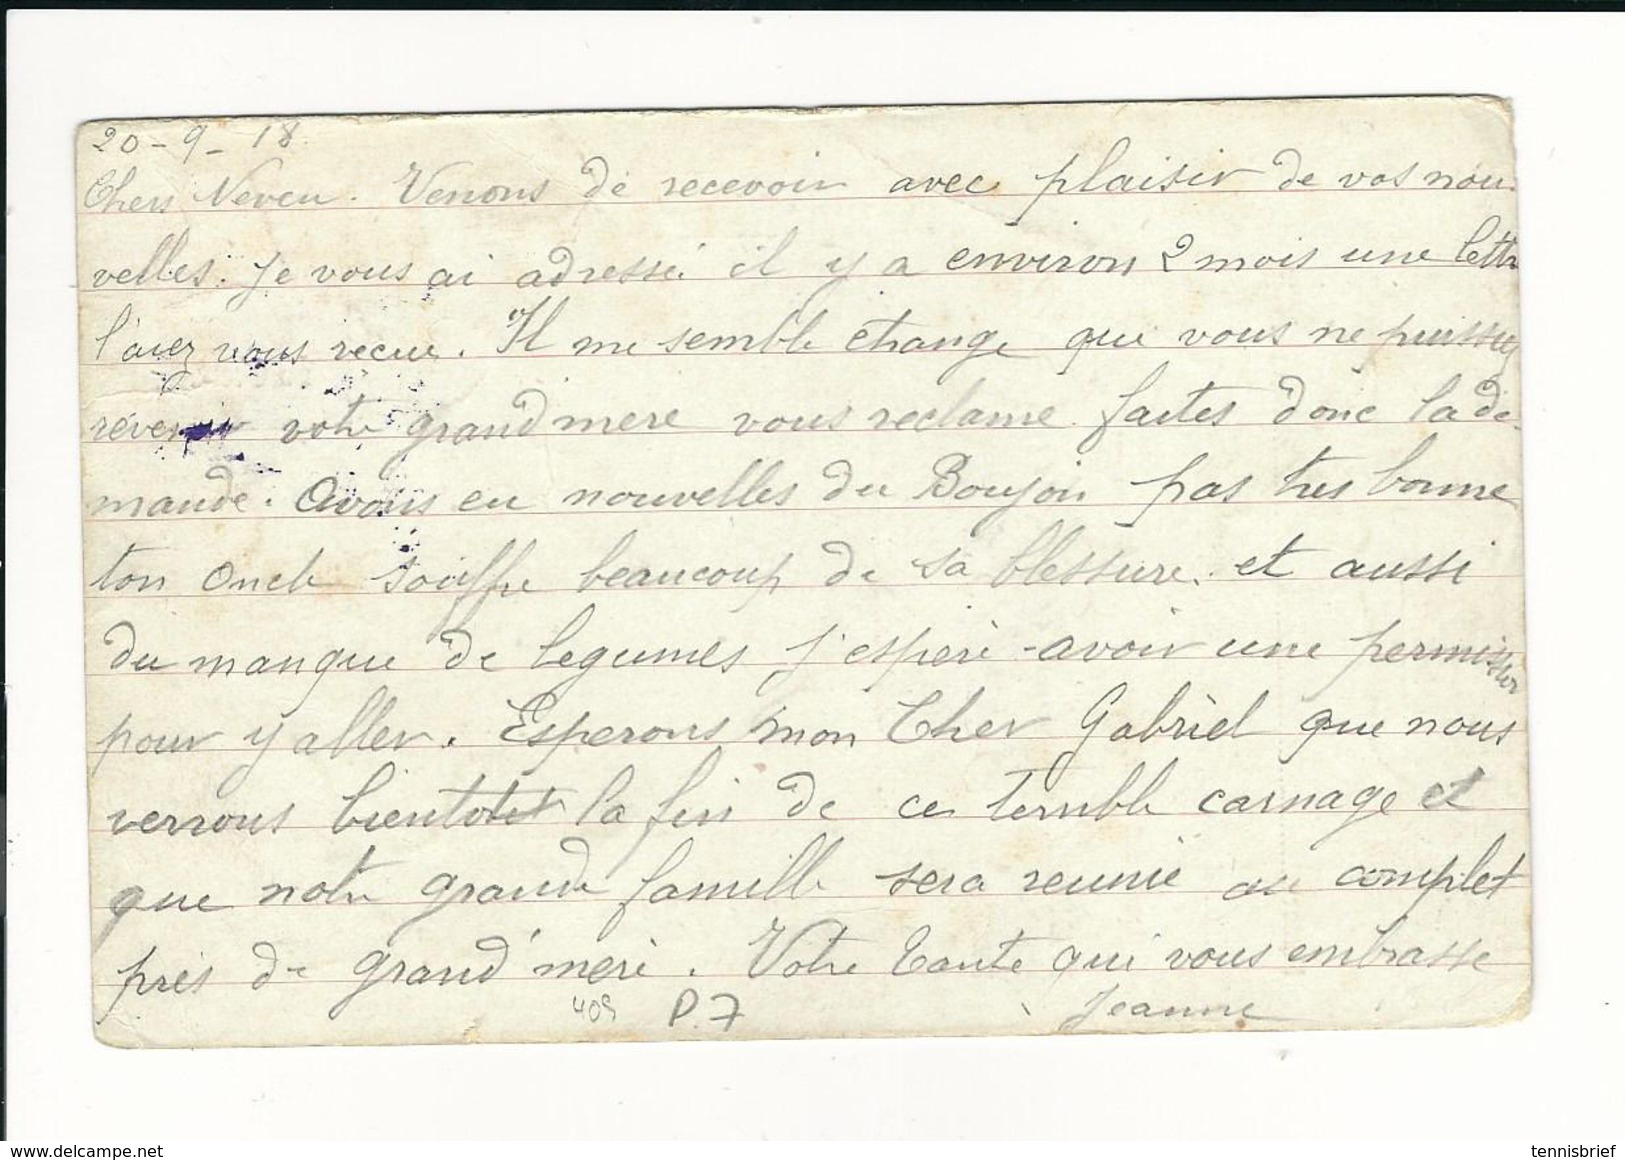 20-9-18
Chers Neveu. Venons de recevoir avec plaisir de vos nou-
velles. Je vous ai adressé il y a environ 2 mois une lettre
l'avez vous recue. Il me semble etrange que vous ne puissiez
révenir votre grand mere vous reclame faites donc la de-
mande. Avons eu nouvelles du Boujon pas tres bonne
ton oncle souffre beaucoup de sa blessure. et aussi
du manque de legumes j'espère avoir une permission
pour y aller. Esperons mon Cher Gabriel que nous
verrons bientot la fin de ce terrible carnage et
que notre grande famille sera reunie au complet
près de grand'mère. Votre tante qui vous embrasse
Jeanne
409 P.7
delcampe.net
tennisbrief